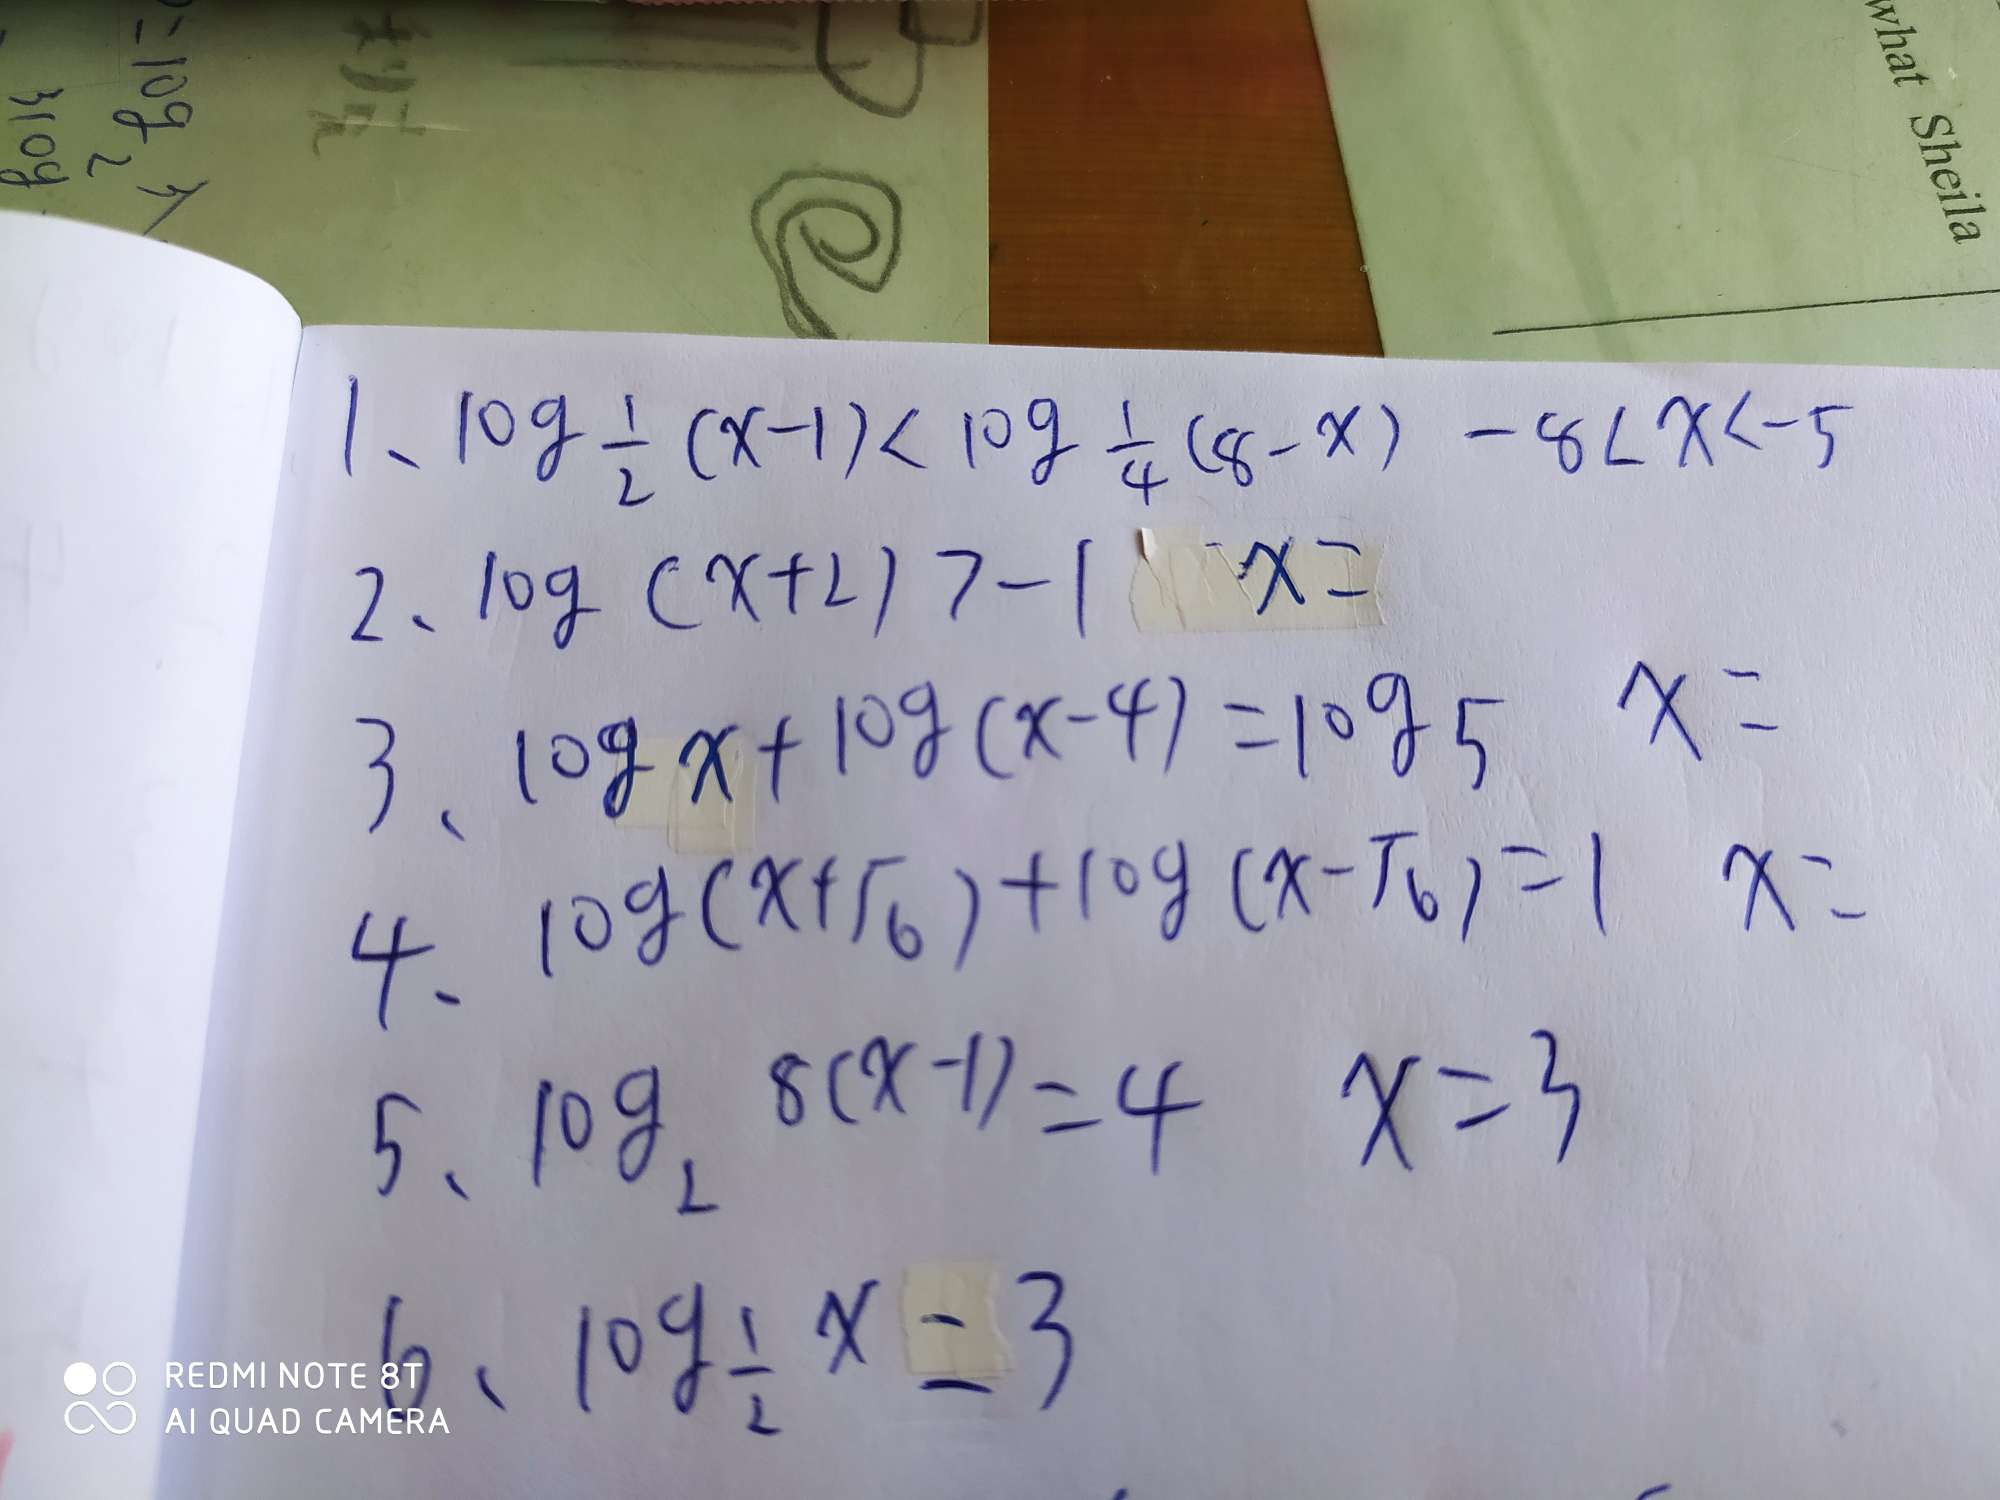 =log 2
3log
what Sheila
1、log 1/2 (x-1) < log 1/4 (8-x) -8<x<-5
2、log (x+2) > -1 x=
3、log x + log(x-4) = log 5 x=
4、log(x+√6) + log(x-√6) = 1 x=
5、log₂ 8(x-1) = 4 x=3
6、log 1/2 x = 3
REDMI NOTE 8T
AI QUAD CAMERA